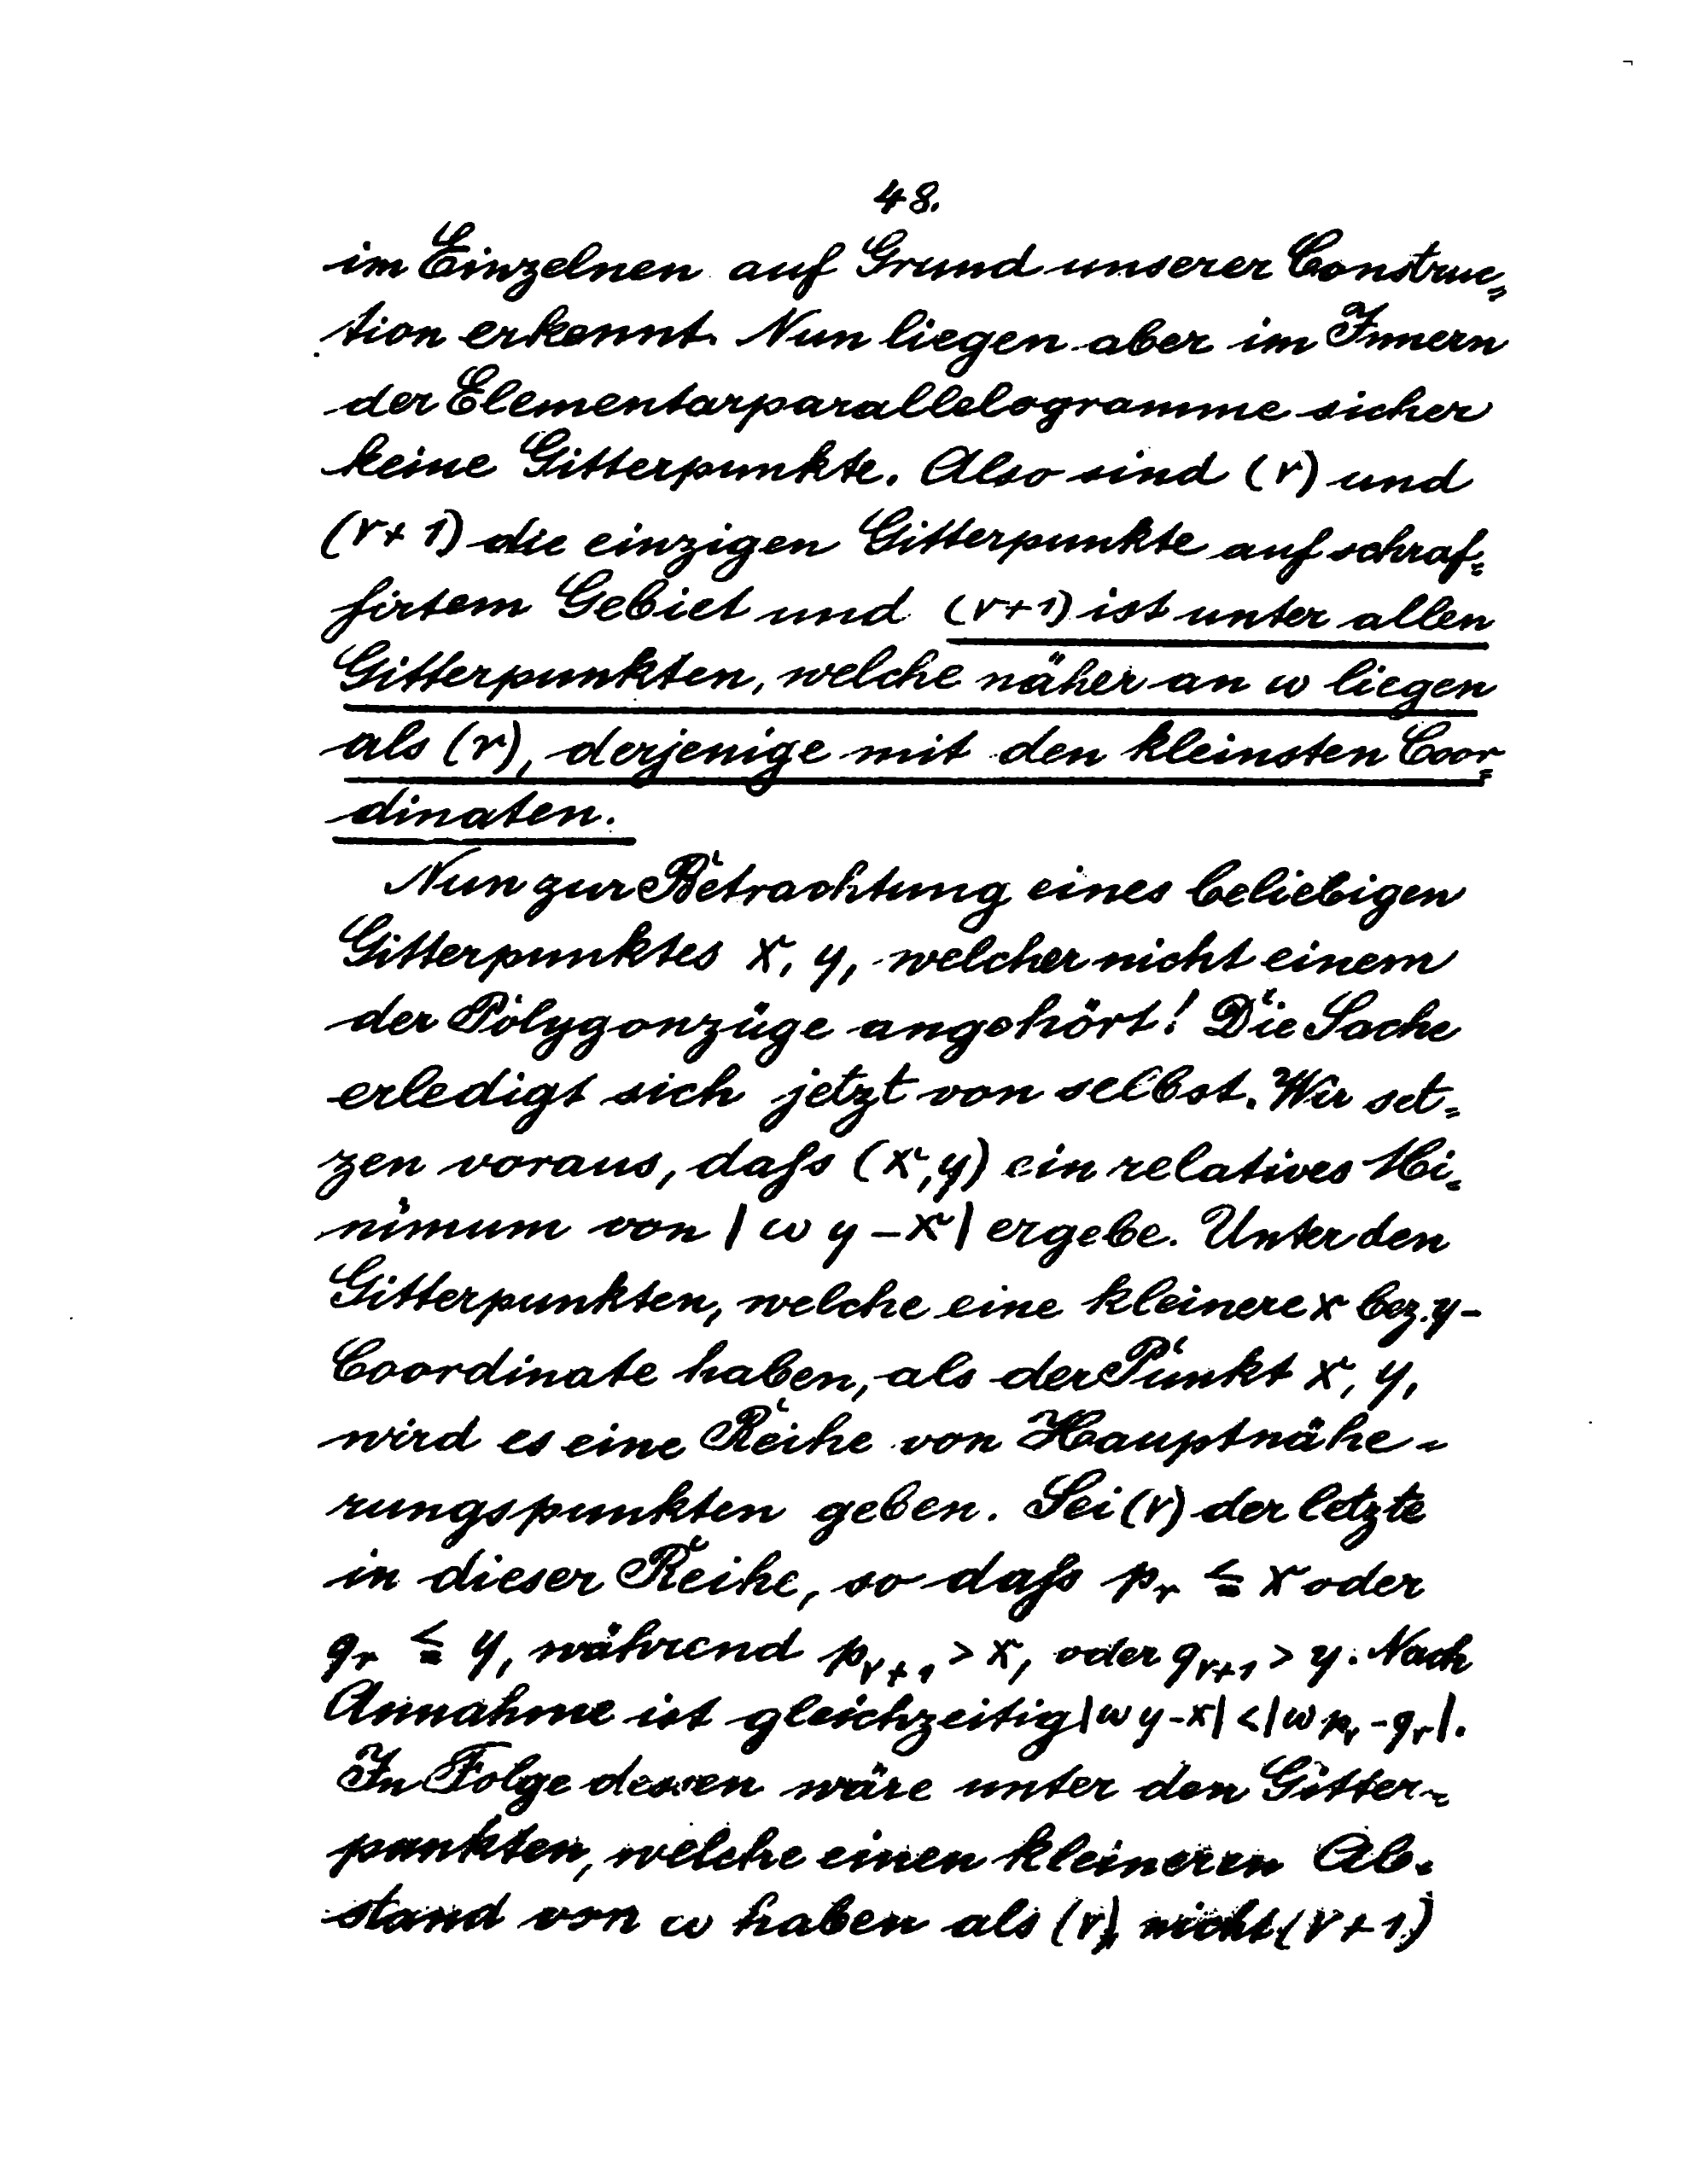 48.
im Einzelnen auf Grund unserer Construc=
tion erkennt. Nun liegen aber im Innern
der Elementarparallelogramme sicher
keine Gitterpunkte. Also sind (r) und
(r+1) die einzigen Gitterpunkte auf schraf=
firtem Gebiet und (r+1) ist unter allen
Gitterpunkten, welche näher an ω liegen
als (r), derjenige mit den kleinsten Coor=
dinaten.
Nun zur Betrachtung eines beliebigen
Gitterpunktes x, y, welcher nicht einem
der Polygonzüge angehört! Die Sache
erledigt sich jetzt von selbst. Wir set=
zen voraus, daſs (x,y) ein relatives Mi=
nimum von |ω y - x| ergebe. Unter den
Gitterpunkten, welche eine kleinere x bez. y-
Coordinate haben, als der Punkt x, y,
wird es eine Reihe von Hauptnähe=
rungspunkten geben. Sei (r) der letzte
in dieser Reihe, so daſs pᵣ ≦ x oder
qᵣ ≦ y, während pᵣ₊₁ > x, oder qᵣ₊₁ > y. Nach
Annahme ist gleichzeitig |ω y - x| < |ω pᵣ - qᵣ|.
In Folge dessen wäre unter den Gitter=
punkten, welche einen kleineren Ab=
stand von ω haben als (r), nicht (r+1)